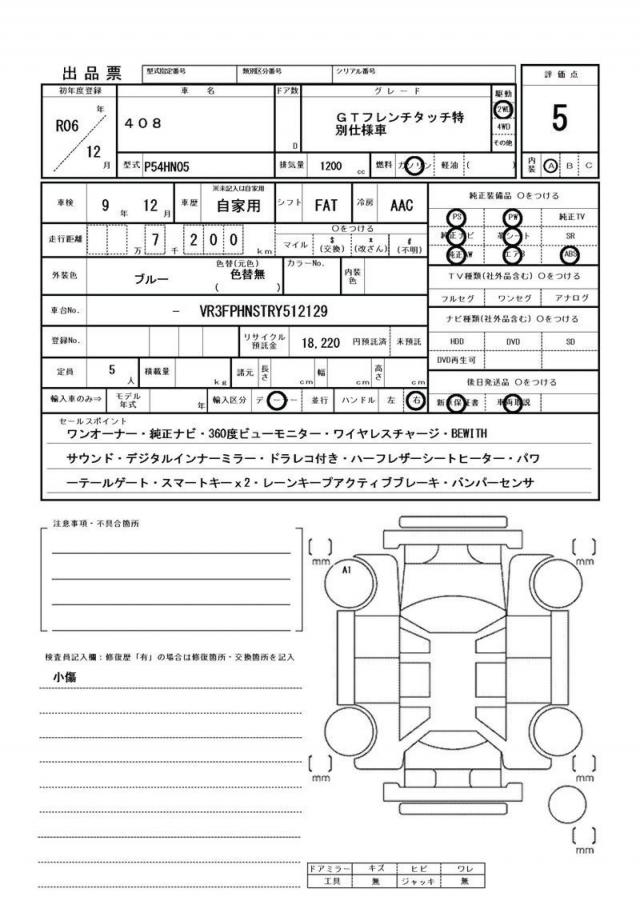 出品票 型式指定番号 類別区分番号 シリアル番号
初年度登録 車名 ドア数 グレード 駆動 評価点
R06 年 12 月 408 D GTフレンチタッチ特別仕様車 2WD 4WD その他 5
型式 P54HN05 排気量 1200 cc 燃料 ガソリン 軽油 ( ) 内装 A B C
車検 9 年 12 月 車歴 ※未記入は自家用 自家用 シフト FAT 冷房 AAC
純正装備品 ○をつける
PS PW 純正TV
走行距離 万 7 千 2 0 0 km ○をつける マイル $ (交換) x (改ざん) # (不明)
純正ナビ 革シート SR
純正AW エアB ABS
外装色 ブルー 色替(元色) 色替無 ( ) カラーNo. 内装色
TV種類(社外品含む) ○をつける
フルセグ ワンセグ アナログ
車台No. - VR3FPHNSTRY512129
ナビ種類(社外品含む) ○をつける
登録No. リサイクル預託金 18,220 円預託済 未預託
HDD DVD SD
DVD再生可
定員 5 人 積載量 kg 諸元 長さ cm 幅 cm 高さ cm
後日発送品 ○をつける
輸入車のみ⇒ モデル年式 年 輸入区分 ディーラー 並行 ハンドル 左 右
新車保証書 車両取説
セールスポイント
ワンオーナー・純正ナビ・360度ビューモニター・ワイヤレスチャージ・BEWITH
サウンド・デジタルインナーミラー・ドラレコ付き・ハーフレザーシートヒーター・パワ
ーテールゲート・スマートキーx2・レーンキープアクティブブレーキ・バンパーセンサ
注意事項・不具合箇所
[ ] mm
[ ] mm
A1
検査員記入欄：修復歴「有」の場合は修復箇所・交換箇所を記入
小傷
[ ] mm
[ ] mm
[ ] mm
ドアミラー キズ ヒビ ワレ
工具 無 ジャッキ 無